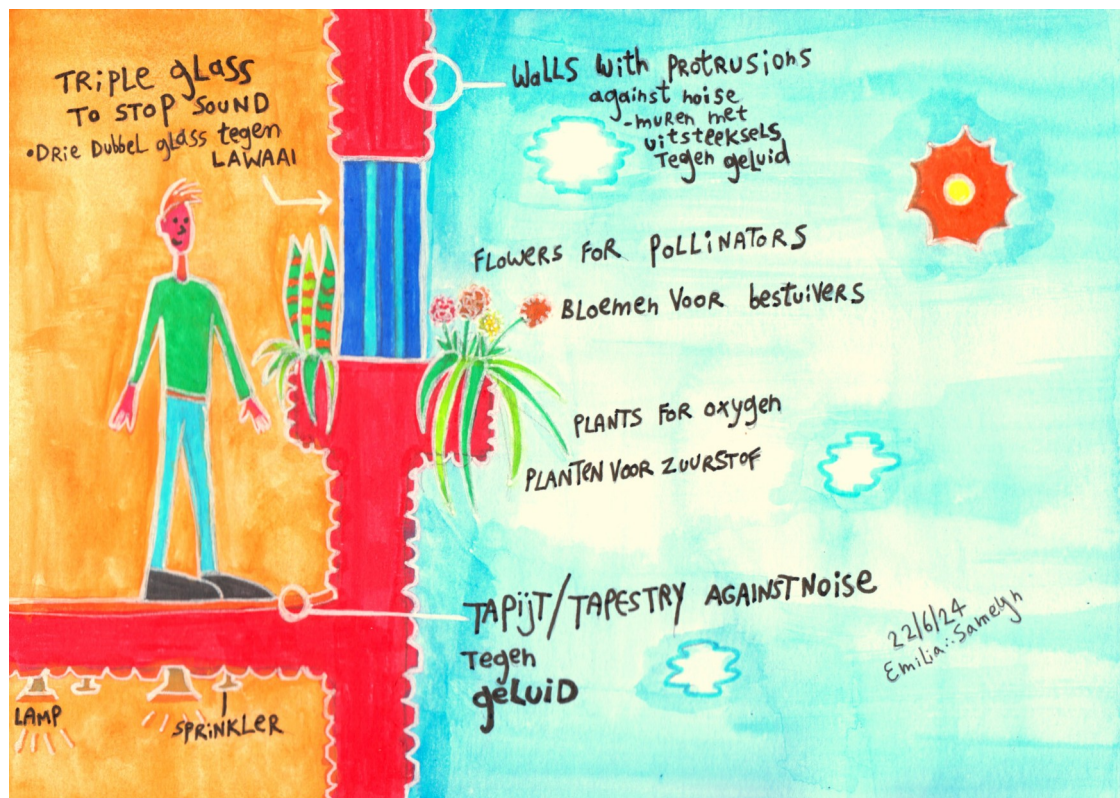 TRiPLE gLASS
TO STOP SOUND
•DRie DUBBEL gLASS tegen
LAWAAI
WaLLS With PROTRUSiOnS
against noise
-muren met
uitsteeksels
Tegen geluid
FLOWERS FOR POLLiNATORS
BLOemen VOOR bestuivers
PLANTS FOR oxygen
PLANTEN VOOR ZUURSTOF
TAPijT/TAPESTRY AGAINST NOiSE
Tegen
geLuiD
22/6/24
Emilia :. Samelyn
LAMP
SPRiNKLER